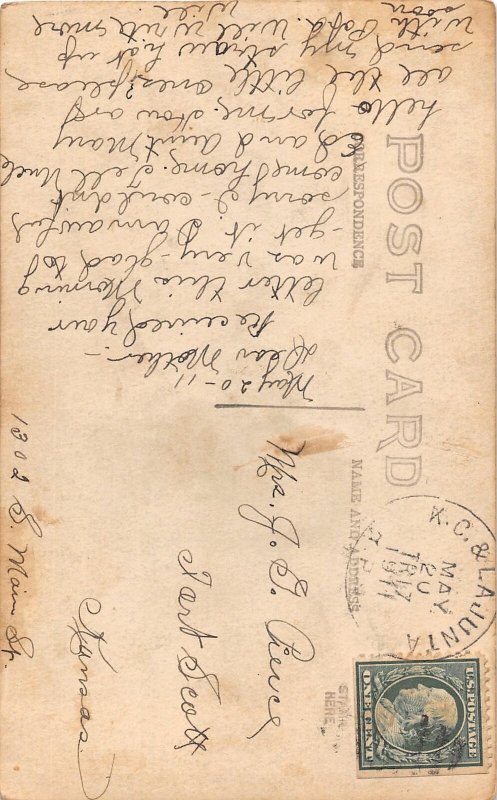 POST CARD
CORRESPONDENCE
NAME AND ADDRESS
May 20-11
Dear Mother:-
Received your
letter this Morning
was very glad to
get it I am awful
sorry I couldnt
come home. Tell Uncle
Ed and Aunt Mary
hello for me. How are
all the little ones? please
send my straw hat up
with Papa. Will write more
soon
Will.
Mrs. J. T. Pierce
Fort Scott
Kansas.
1302 S. Main St.
K.C. & LAJUNTA
MAY
20
1911
R.P.O.
STAMP
HERE
U.S. POSTAGE
ONE CENT